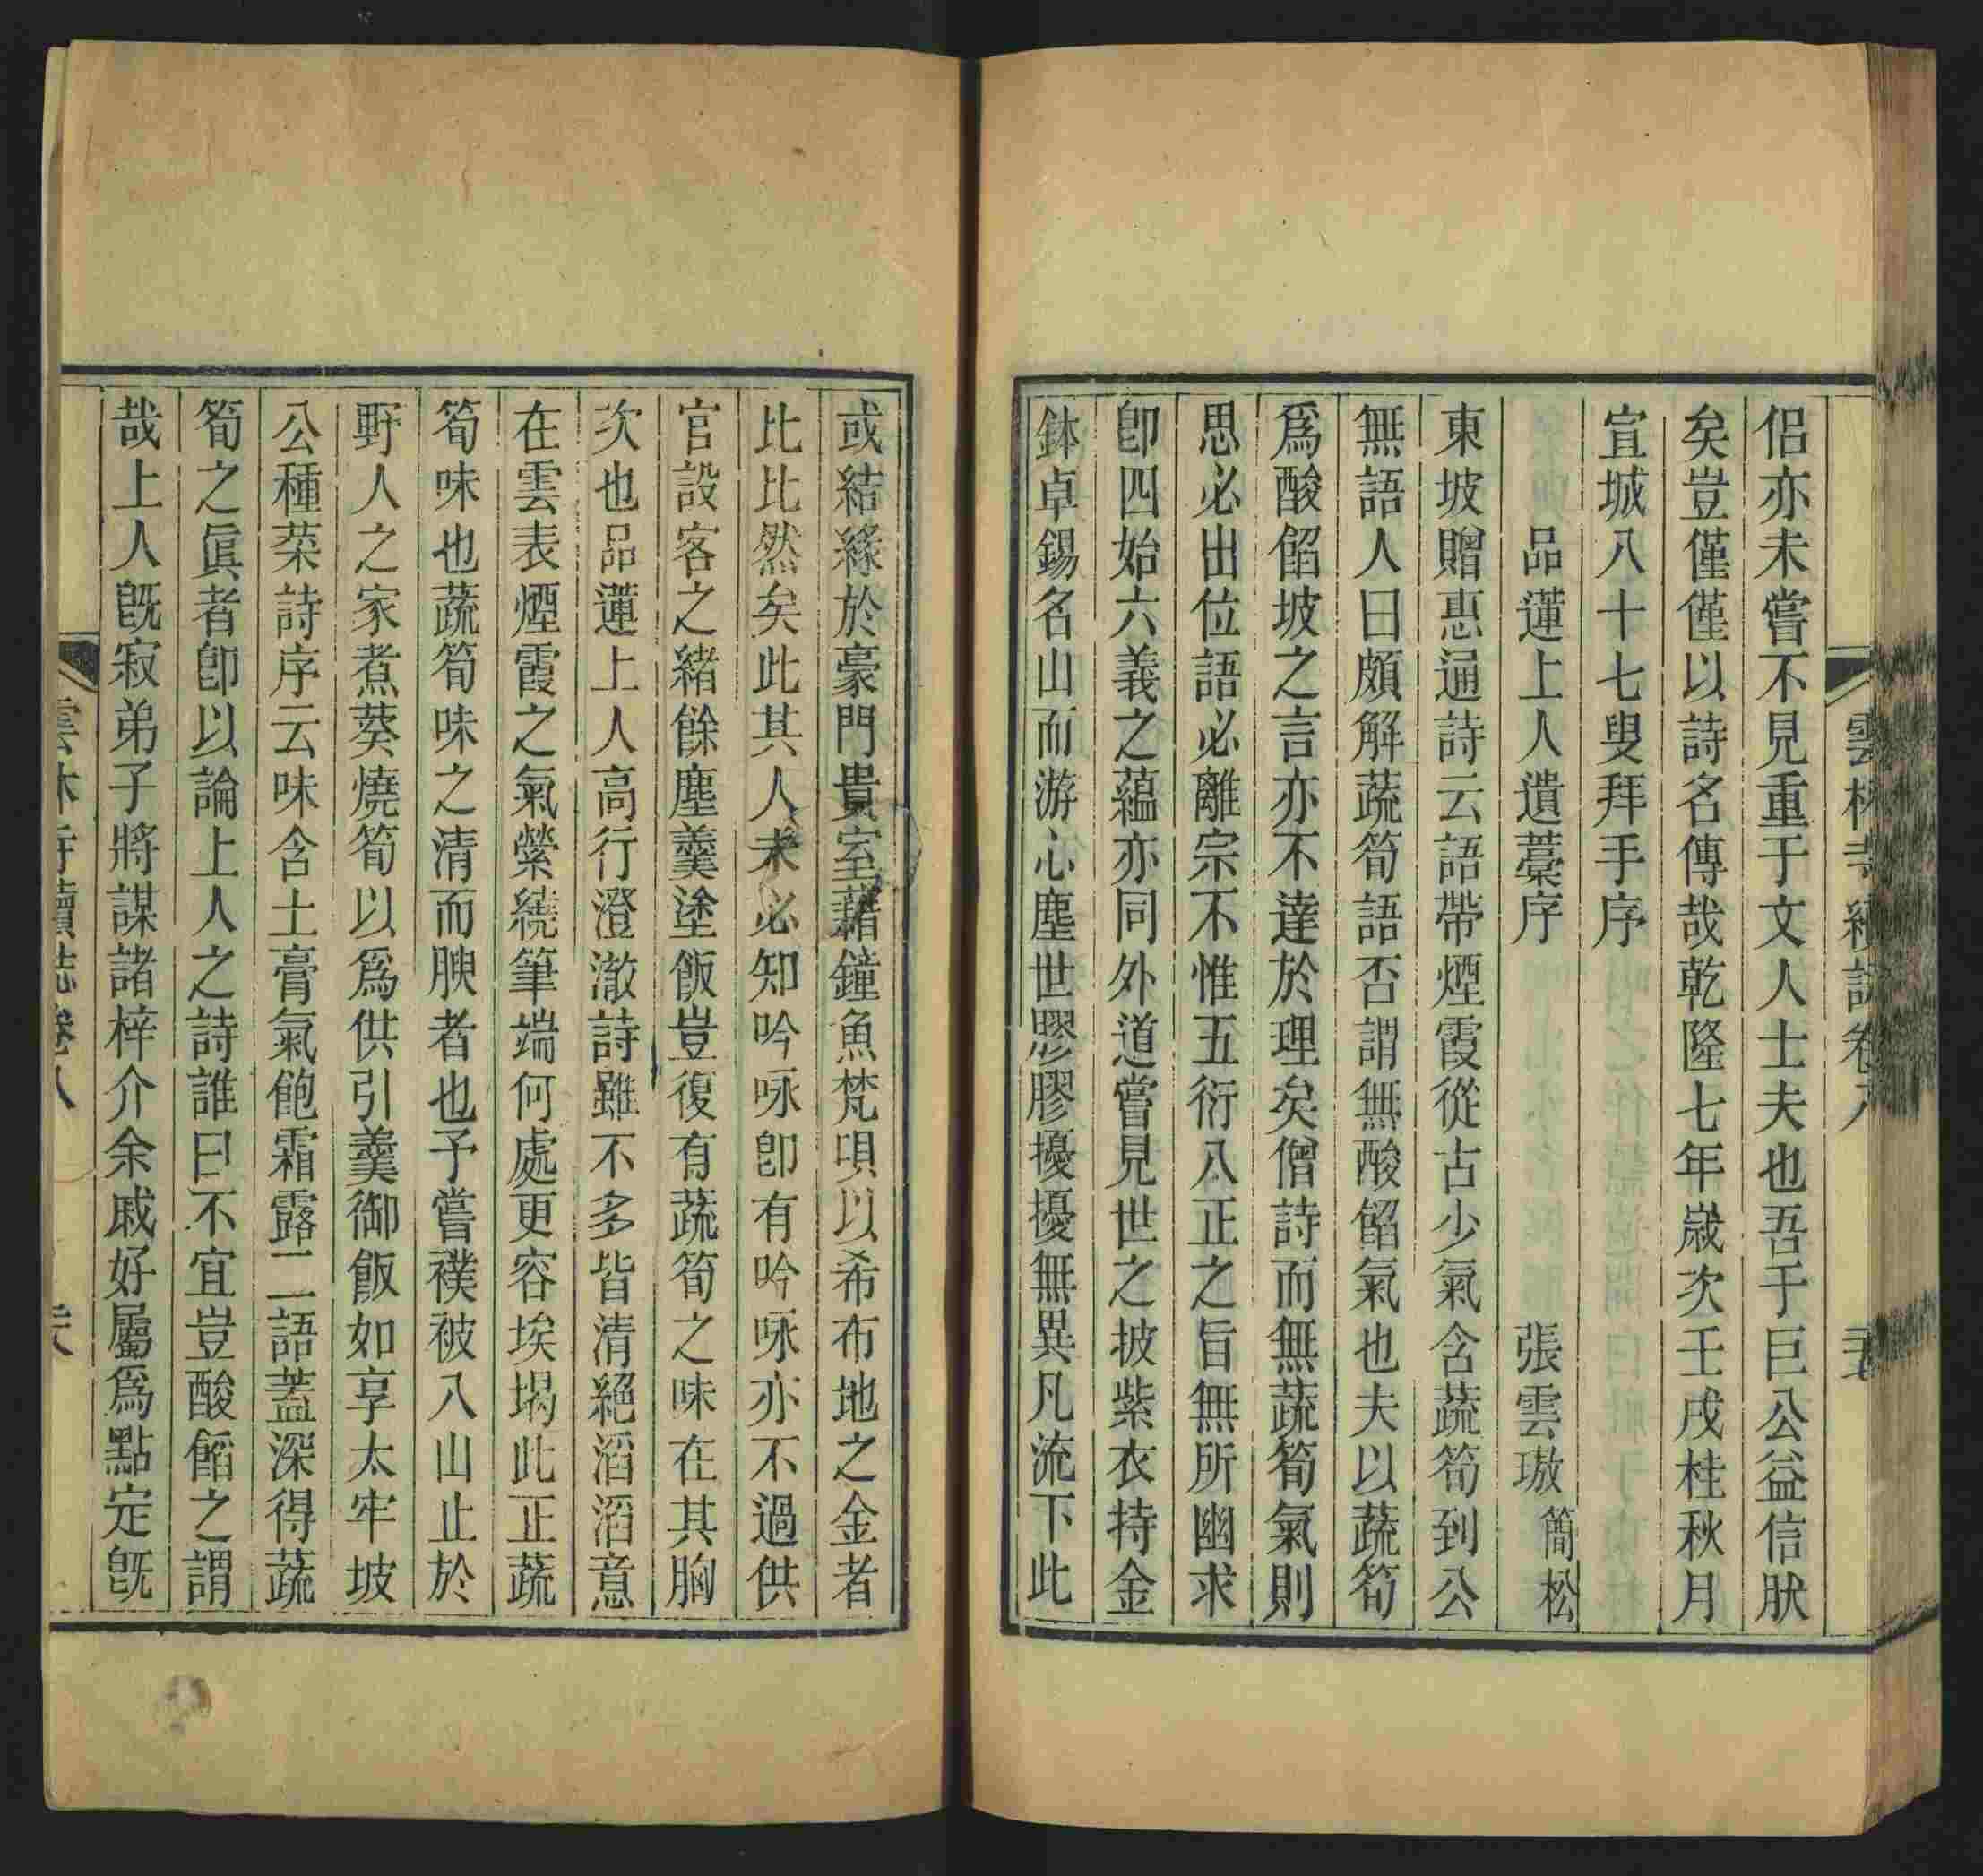 侣亦未嘗不見重于文人士夫也吾于巨公益信肰
矣豈僅僅以詩名傳哉乾隆七年歲次壬戌桂秋月
宣城八十七叟拜手序
品蓮上人遺藁序 張雲璈 簡松
東坡贈惠通詩云語帶煙霞從古少氣含蔬筍到公
無語人曰頗解蔬筍語否謂無酸餡氣也夫以蔬筍
爲酸餡坡之言亦不達於理矣僧詩而無蔬筍氣則
思必出位語必離宗不惟五衍八正之旨無所幽求
卽四始六義之蘊亦同外道嘗見世之披紫衣持金
鉢卓錫名山而游心塵世膠膠擾擾無異凡流下此
或結緣於豪門貴室藉鐘魚梵唄以希布地之金者
比比然矣此其人未必知吟咏卽有吟咏亦不過供
官設客之緒餘塵羹塗飯豈復有蔬筍之味在其胸
次也品蓮上人高行澄澈詩雖不多皆清絕滔滔意
在雲表煙霞之氣縈繞筆端何處更容埃堨此正蔬
筍味也蔬筍味之清而腴者也予嘗襆被入山止於
野人之家煮葵燒筍以爲供引羹御飯如享太牢坡
公種菜詩序云味含土膏氣飽霜露二語蓋深得蔬
筍之眞者卽以論上人之詩誰曰不宜豈酸餡之謂
哉上人旣寂弟子將謀諸梓介余戚好屬爲點定旣
雲林寺續誌卷八